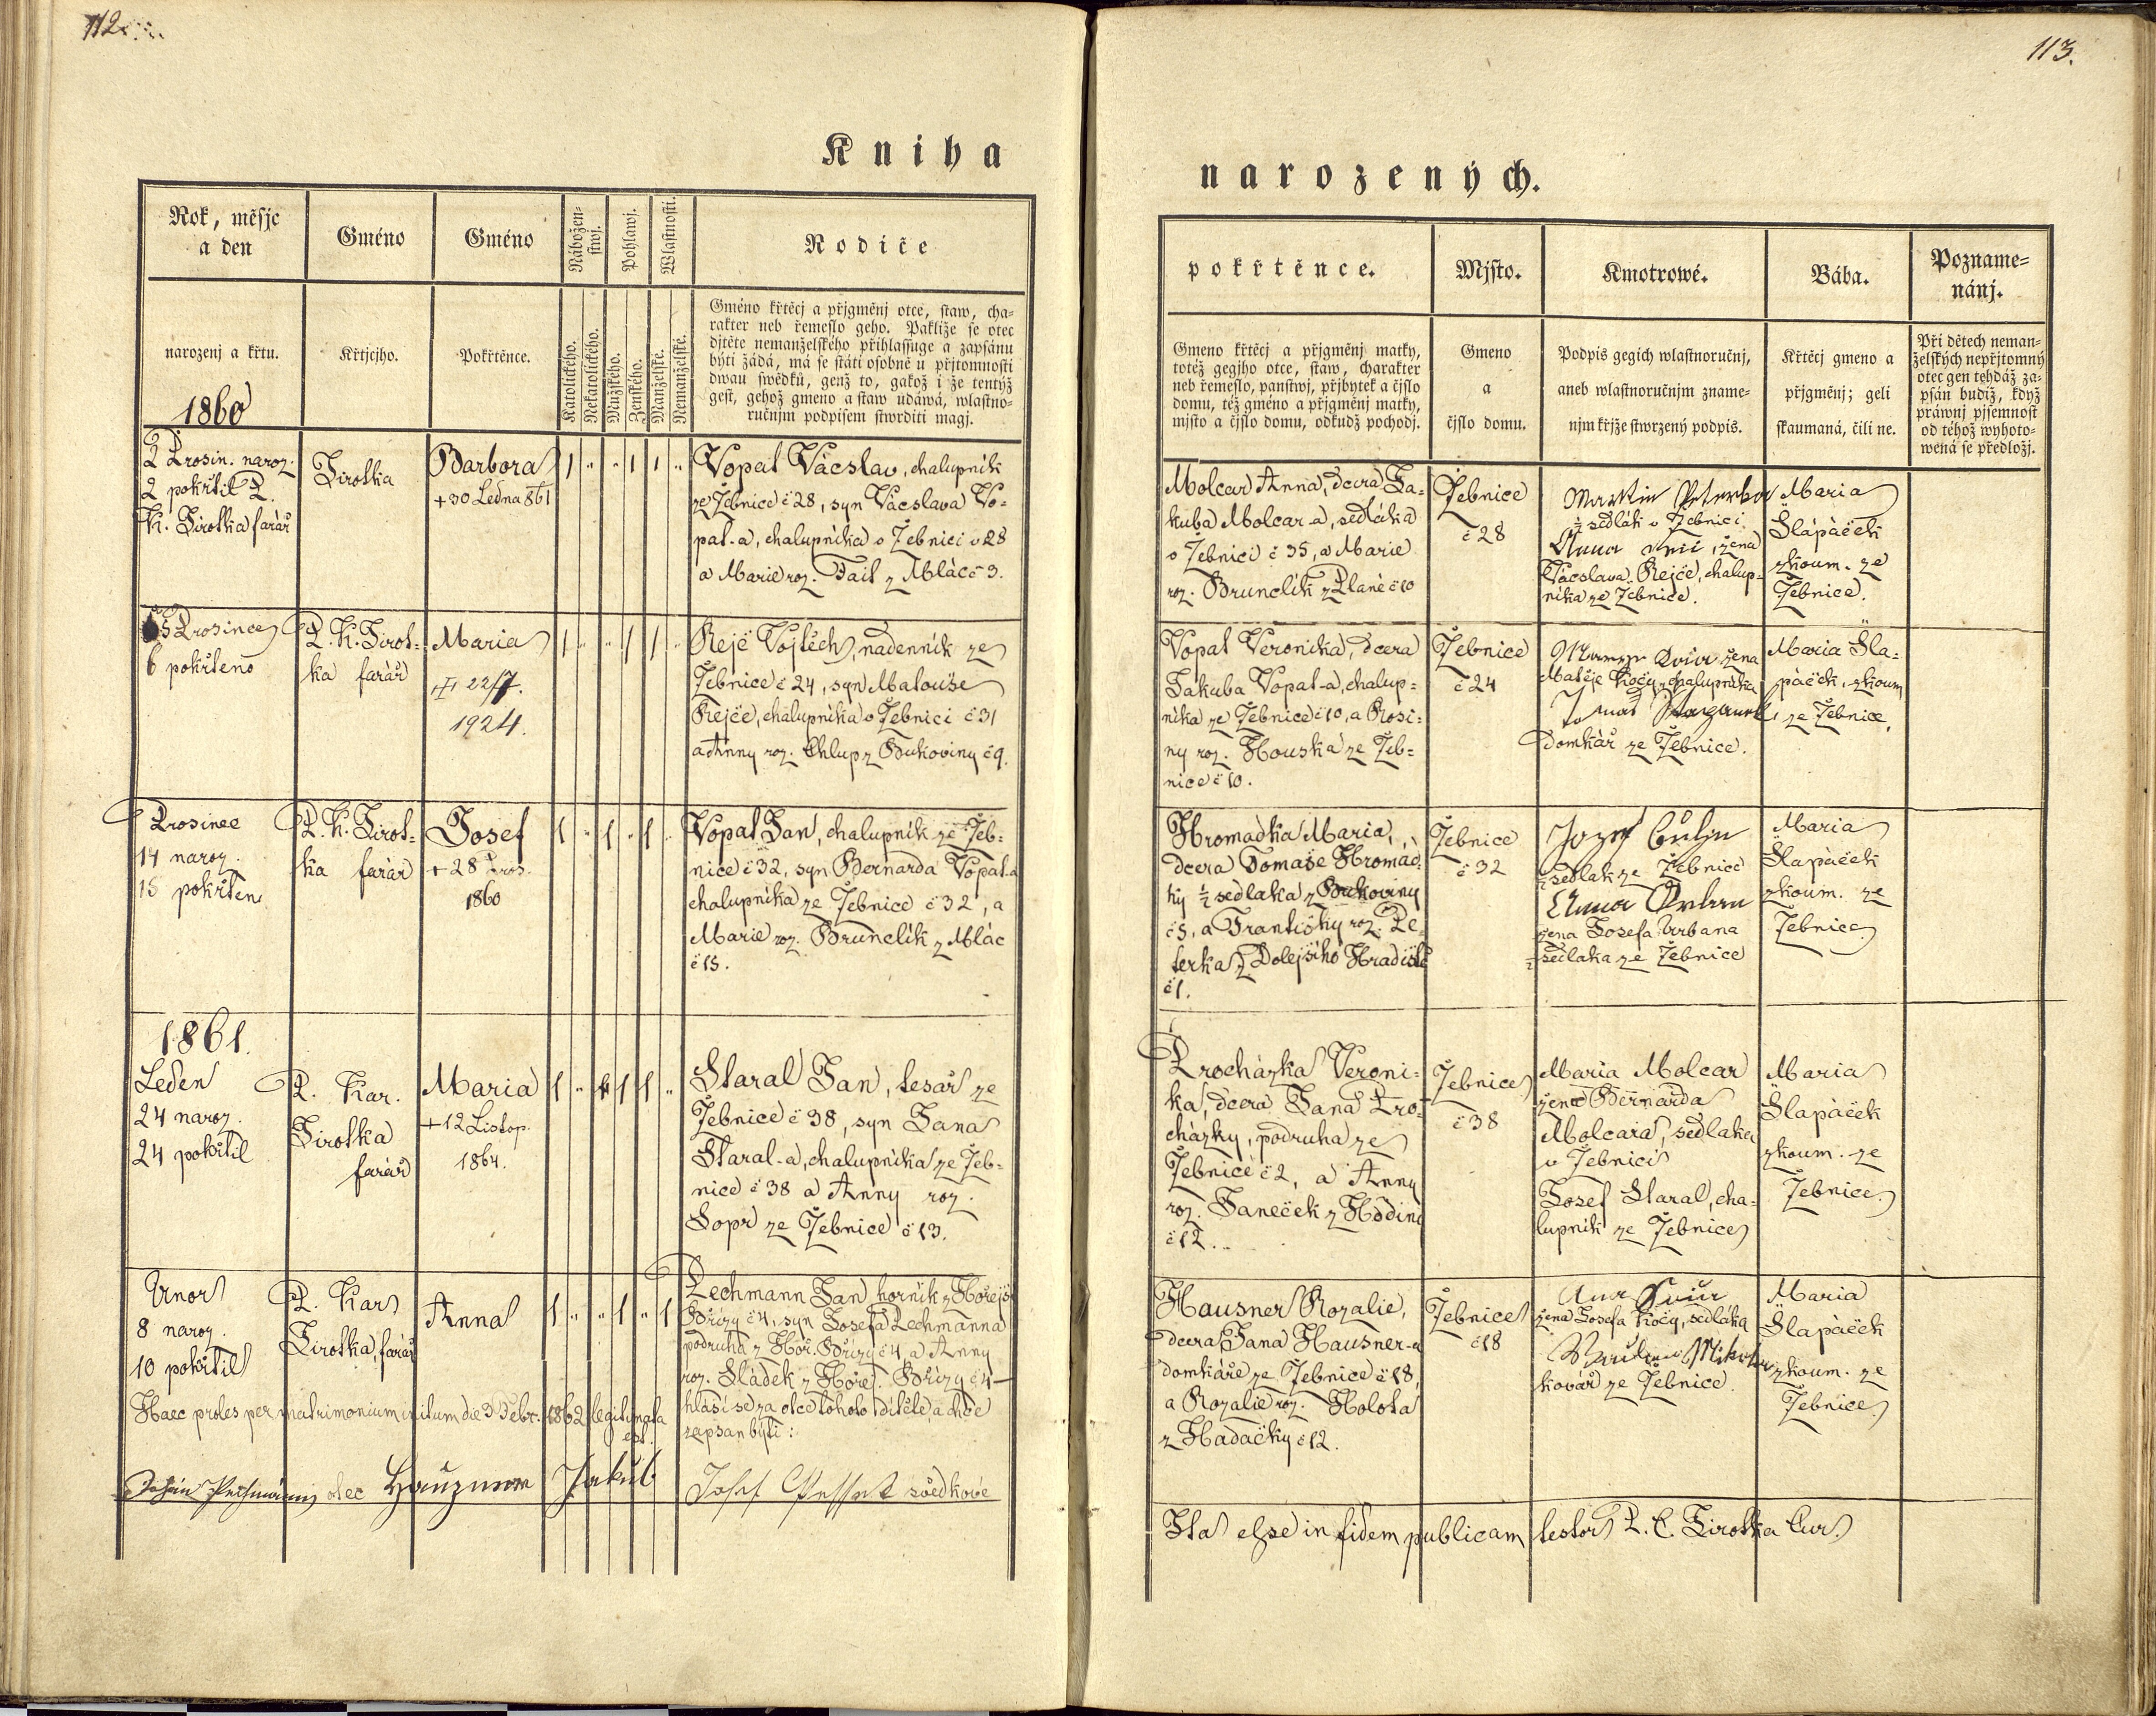 112
Kniha
Rok, měsjc
a den
Gméno
Gméno
Nábožen-
stwj.
Pohlawj.
Wlastnosti.
Rodiče
narozenj a křtu.
1860
Křtjcjho.
Pokřtěnce.
Katolického.
Nekatolického.
Mužského.
Ženského.
Manželské.
Nemanželské.
Gméno křtěcj a přjgměnj otce, staw, cha-
rakter neb řemeslo geho. Pakliže se otec
djtěte nemanželského přihlassuge a zapsánu
býti žádá, má se státi osobně u přjtomnosti
dwau swědků, genž to, gakož i že tentýž
gest, gehož gmeno a staw udáwá, wlastno-
ručnjm podpisem stwrditi magj.
2 Prosin. naroz.
2 pokřtil P.
K. Sirotka farář
Sirotka
Barbora
+30 Ledna 861
1 " " 1 1 "
Vopat Václav, chalupník
ze Žebnice č 28, syn Václava Vo-
pat-a, chalupníka v Žebnici č 28
a Marie roz. Fait z Mláce 3.
5 Prosince
6 pokřteno
P. K. Sirot-
ka farář
Maria
22/7.
1924.
1 " " 1 1 "
Rejč Vojtěch, nadenník ze
Žebnice č 24, syn Matouše
Rejče, chalupníka v Žebnici č 31
a Anny roz. Chlup z Bukoviny č 9.
Prosinec
14 naroz.
15 pokřten
P. K. Sirot-
ka farář
Josef
+28 Pros.
1860
1 " 1 " 1 "
Vopat Jan, chalupník ze Žeb-
nice č 32, syn Bernarda Vopat-a
chalupníka ze Žebnice č 32, a
Marie roz. Brunclík z Mlác
č 15.
1861.
Leden
24 naroz.
24 pokřtil
P. Kar.
Sirotka
farář
Maria
+12 Listop.
1864.
1 " " 1 1 "
Staral Jan, tesař ze
Žebnice č 38, syn Jana
Staral-a, chalupníka ze Žeb-
nice č 38 a Anny roz.
Sopr ze Žebnice č 13.
Unor
8 naroz.
10 pokřtil
P. Kar
Sirotka, farář
Anna
1 " " 1 " 1
Pechmann Jan horník z Hořejší
Břízy č 4, syn Josefa Pechmanna
podruha z Hoř. Břízy č 4, a Anny
roz. Sládek z Hořej. Břízy č 4 —
hlásí se za otce tohoto dítěte a chce
zapsan býti:
Haec proles per matrimonium initum die 3 Febr. 1862 legitimata
est.
Johan Pechmann otec Hauzner Jakub Josef svědkové
113.
narozených.
pokřtěnce.
Mjsto.
Kmotrowé.
Bába.
Pozname-
nánj.
Gmeno křtěcj a přjgměnj matky,
totéž gegjho otce, staw, charakter
neb řemeslo, panstwj, přjbytek a čjslo
domu, též gméno a přjgměnj matky,
mjsto a čjslo domu, odkudž pochodj.
Gmeno
a
čjslo domu.
Podpis gegich wlastnoručnj,
aneb wlastnoručnjm zname-
njm křjže stwrzený podpis.
Křtěcj gmeno a
přjgměnj; geli
skaumaná, čili ne.
Při dětech neman-
želských nepřjtomný
otec gen tehdáž za-
psán budiž, když
práwnj pjsemnost
od téhož wyhoto-
wená se předložj.
Molcar Anna, dcera Ja-
kuba Molcar-a, sedláka
v Žebnici č 35, a Marie
roz. Brunclík z Plané č 10
Žebnice
č 28
Martin Peterka
½ sedlák v Žebnici
Anna žena
Václava Rejče, chalup-
níka ze Žebnice.
Maria
Šlapáček
zkoum. ze
Žebnice.
Vopat Veronika, dcera
Jakuba Vopat-a, chalup-
níka ze Žebnice č 10, a Rosi-
ny roz. Houska ze Žeb-
nice č 10.
Žebnice
č 24
žena
Matěje Kočy, chalupníka
Tomáš
domkář ze Žebnice.
Maria Šla-
páček, zkoum.
ze Žebnice.
Hromadka Maria,
dcera Tomaše Hromád-
ky ½ sedlaka z Bukoviny
č 5, a Františky roz. Pe-
terka z Dolejšího Hradiště
č 1.
Žebnice
č 32
Jozef
½ sedlak ze Žebnice
Anna Urban
žena Josefa Urbana
½ sedlaka ze Žebnice
Maria
Šlapáček
zkoum. ze
Žebnice
Procházka Veroni-
ka, dcera Jana Pro-
cházky, podruha ze
Žebnice č 2, a Anny
roz. Janeček z Hodině
č 12.
Žebnice
č 38
Maria Molcar
žena Bernarda
Molcara, sedlaka
v Žebnici
Josef Staral, cha-
lupník ze Žebnice
Maria
Šlapáček
zkoum. ze
Žebnice
Hausner Rozalie,
dcera Jana Hausner-a
domkáře ze Žebnice č 18,
a Rozalie roz. Holota
z Hadačky č 12.
Žebnice
č 18
žena Josefa Kočy, sedláka
kovář ze Žebnice.
Maria
Šlapáček
zkoum. ze
Žebnice
Ita esse in fidem publicam testor P. C. Sirotka Cur.